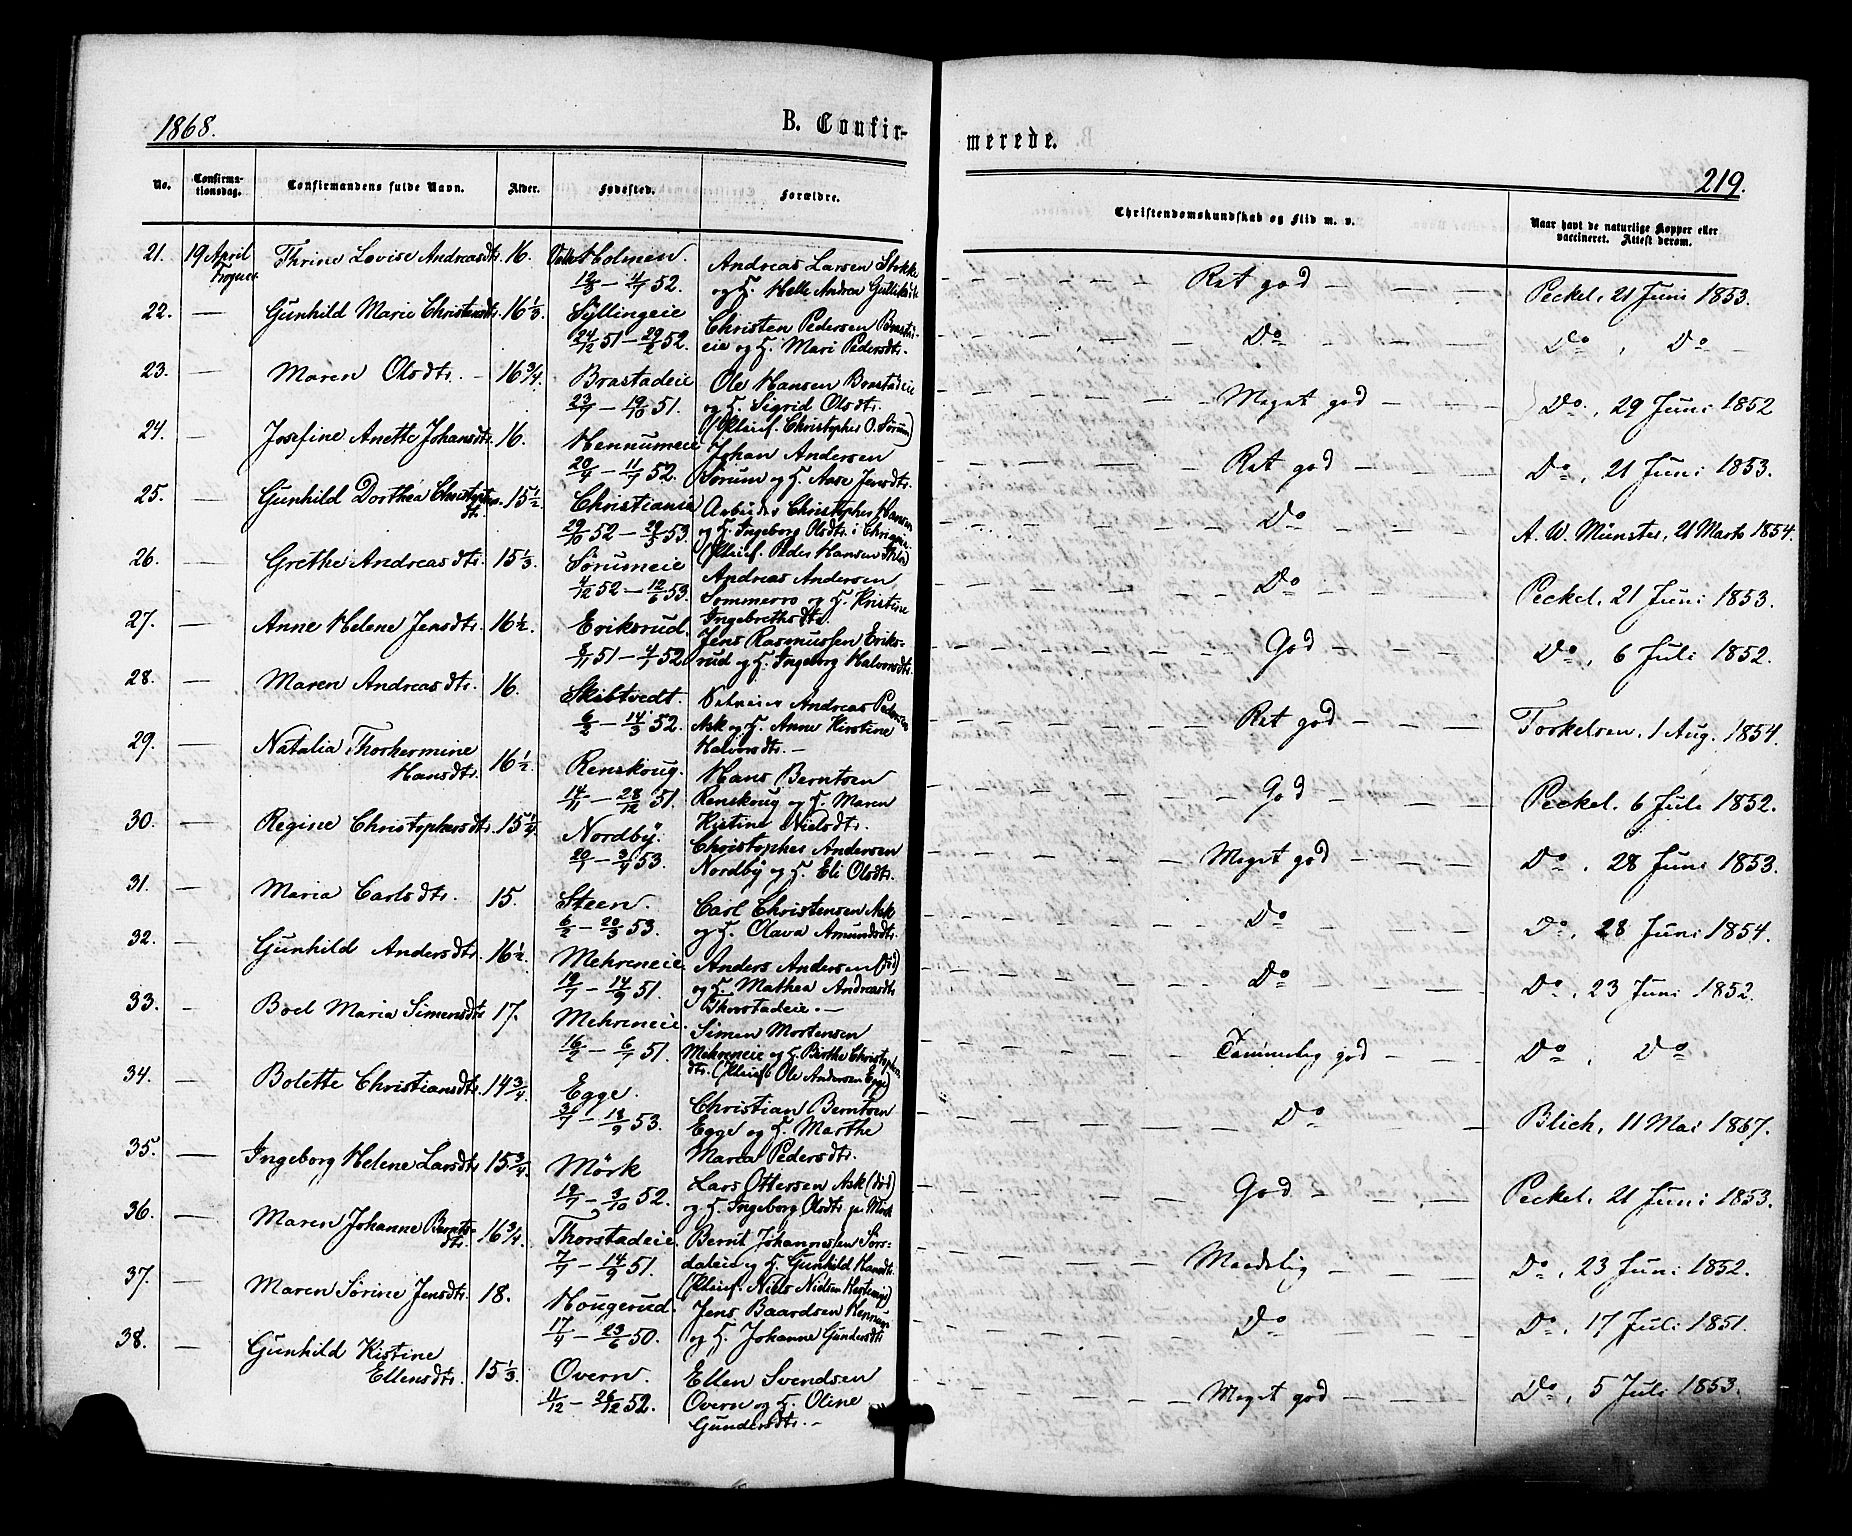 1868.
B. Confir-
merede.
219.
No. Confirma-tionsdag. Confirmandens fulde Navn. Alder. Fødested. Forældre. Christendomskundskab og Flid m. v. Naar havt de naturlige Kopper eller vaccineret. Attest derom.
21. 19 April Thrine Lovise Andreasdtr. 16. Holmen. Andreas Larsen Stokke Ret god Peckel, 21 Juni 1853.
4/7 52. og H. Helle Andrea
22. — Gunhild Marie Christensdtr. 16 1/3. Syllingeie Christen Pedersen Do Do, Do
24/12 51 — 29/2 52. eie og H. Mari Pedersdtr.
23. — Maren Olsdtr. 16 3/4. Brastadeie Ole Hansen Brastadeie Meget god Do, 29 Juni 1852
23/7 — 19/10 51. og H. Sigrid Olsdtr.
(Pleief. Christopher O. Sørum)
24. — Josefine Anette Johansdtr. 16. Hennumeie Johan Andersen Ret god Do, 21 Juni 1853.
20/4 — 11/7 52. Sørum og H. Aase Jensdtr.
25. — Gunhild Dorthea 15 1/2. Christiania Arbeider Christopher Hansen Do A. W. Münster, 21 Marts 1854.
29/10 52 — 29/3 53. og H. Ingeborg Olsdtr. i
(Pleief. Peder Hansen
26. — Grethe Andreasdtr. 15 1/3. Sørumeie Andreas Andersen Do Peckel, 21 Juni 1853.
4/12 52 — 12/6 53. Sommerro og H. Kristine
Ingebrethsdtr.
27. — Anne Helene Jensdtr. 16 1/2. Eriksrud. Jens Rasmussen Eriks- God Do, 6 Juli 1852.
8/11 51 — 4/1 52. rud og H. Ingeborg Halvorsdtr.
28. — Maren Andreasdtr. 16. Skibtvedt. Andreas Pedersen Ret god Torkelsen, 1 Aug. 1854.
6/2 — 14/3 52. Ask og H. Anne Kirstine
Halvorsdtr. —
29. — Natalia Thorhermine 16 1/2. Renskoug. Hans Berntsen God Peckel, 6 Juli 1852.
Hansdtr. 14/11 — 28/12 51. Renskoug og H. Maren
Kistine Nielsdtr.
30. — Regine Christophersdtr. 15 1/4. Nordby. Christopher Andersen Meget god Do, 28 Juni 1853.
3/4 53. Nordby og H. Eli Olsdtr.
31. — Maria Carlsdtr. 15. Steen. Carl Christensen Ask Do Do, 28 Juni 1854.
6/2 — 20/3 53. og H. Olava Amundsdtr.
32. — Gunhild Andersdtr. 16 1/2. Mehreneie Anders Andersen (død) Do Do, 23 Juni 1852.
14/9 51. og H. Mathea Andreasdtr.
Thorstadeie. —
33. — Boel Maria Simensdtr. 17. Mehreneie. Simen Mortensen Temmelig god Do, Do
16/2 — 6/7 51. Mehreneie og H. Birthe
(Pleief. Ole Andersen Egge)
34. — Bolette Christiansdtr. 14 3/4. Egge. Christian Berntsen Do Blich, 11 Mai 1867.
18/9 53. Egge og H. Marthe
Maria Pedersdtr.
35. — Ingeborg Helene Larsdtr. 15 3/4. Mörk Lars Ottersen Ask (død) God Peckel, 21 Juni 1853.
3/10 52. og H. Ingeborg Olsdtr. Mörk
36. — Maren Johanne Bernts- 16 3/4. Thorstadeie. Bernt Johannessen Sørs- Maadelig Do, 23 Juni 1852.
dtr. 7/7 — 14/9 51. daleie og H. Gunhild Hansdtr.
(Pleief. Niels Nielsen
37. — Maren Sørine Jensdtr. 18. Hougerud. Jens Baardsen Hennum Do Do, 17 Juli 1851.
17/4 — 23/6 50. og H. Johanne Gundersdtr.
38. — Gunhild Kistine 15 1/3. Overn. Ellen Svendsen Meget god Do, 5 Juli 1853.
Ellensdtr. 11/12 — 26/12 52. Overn og H. Oline
Gundersdtr. —